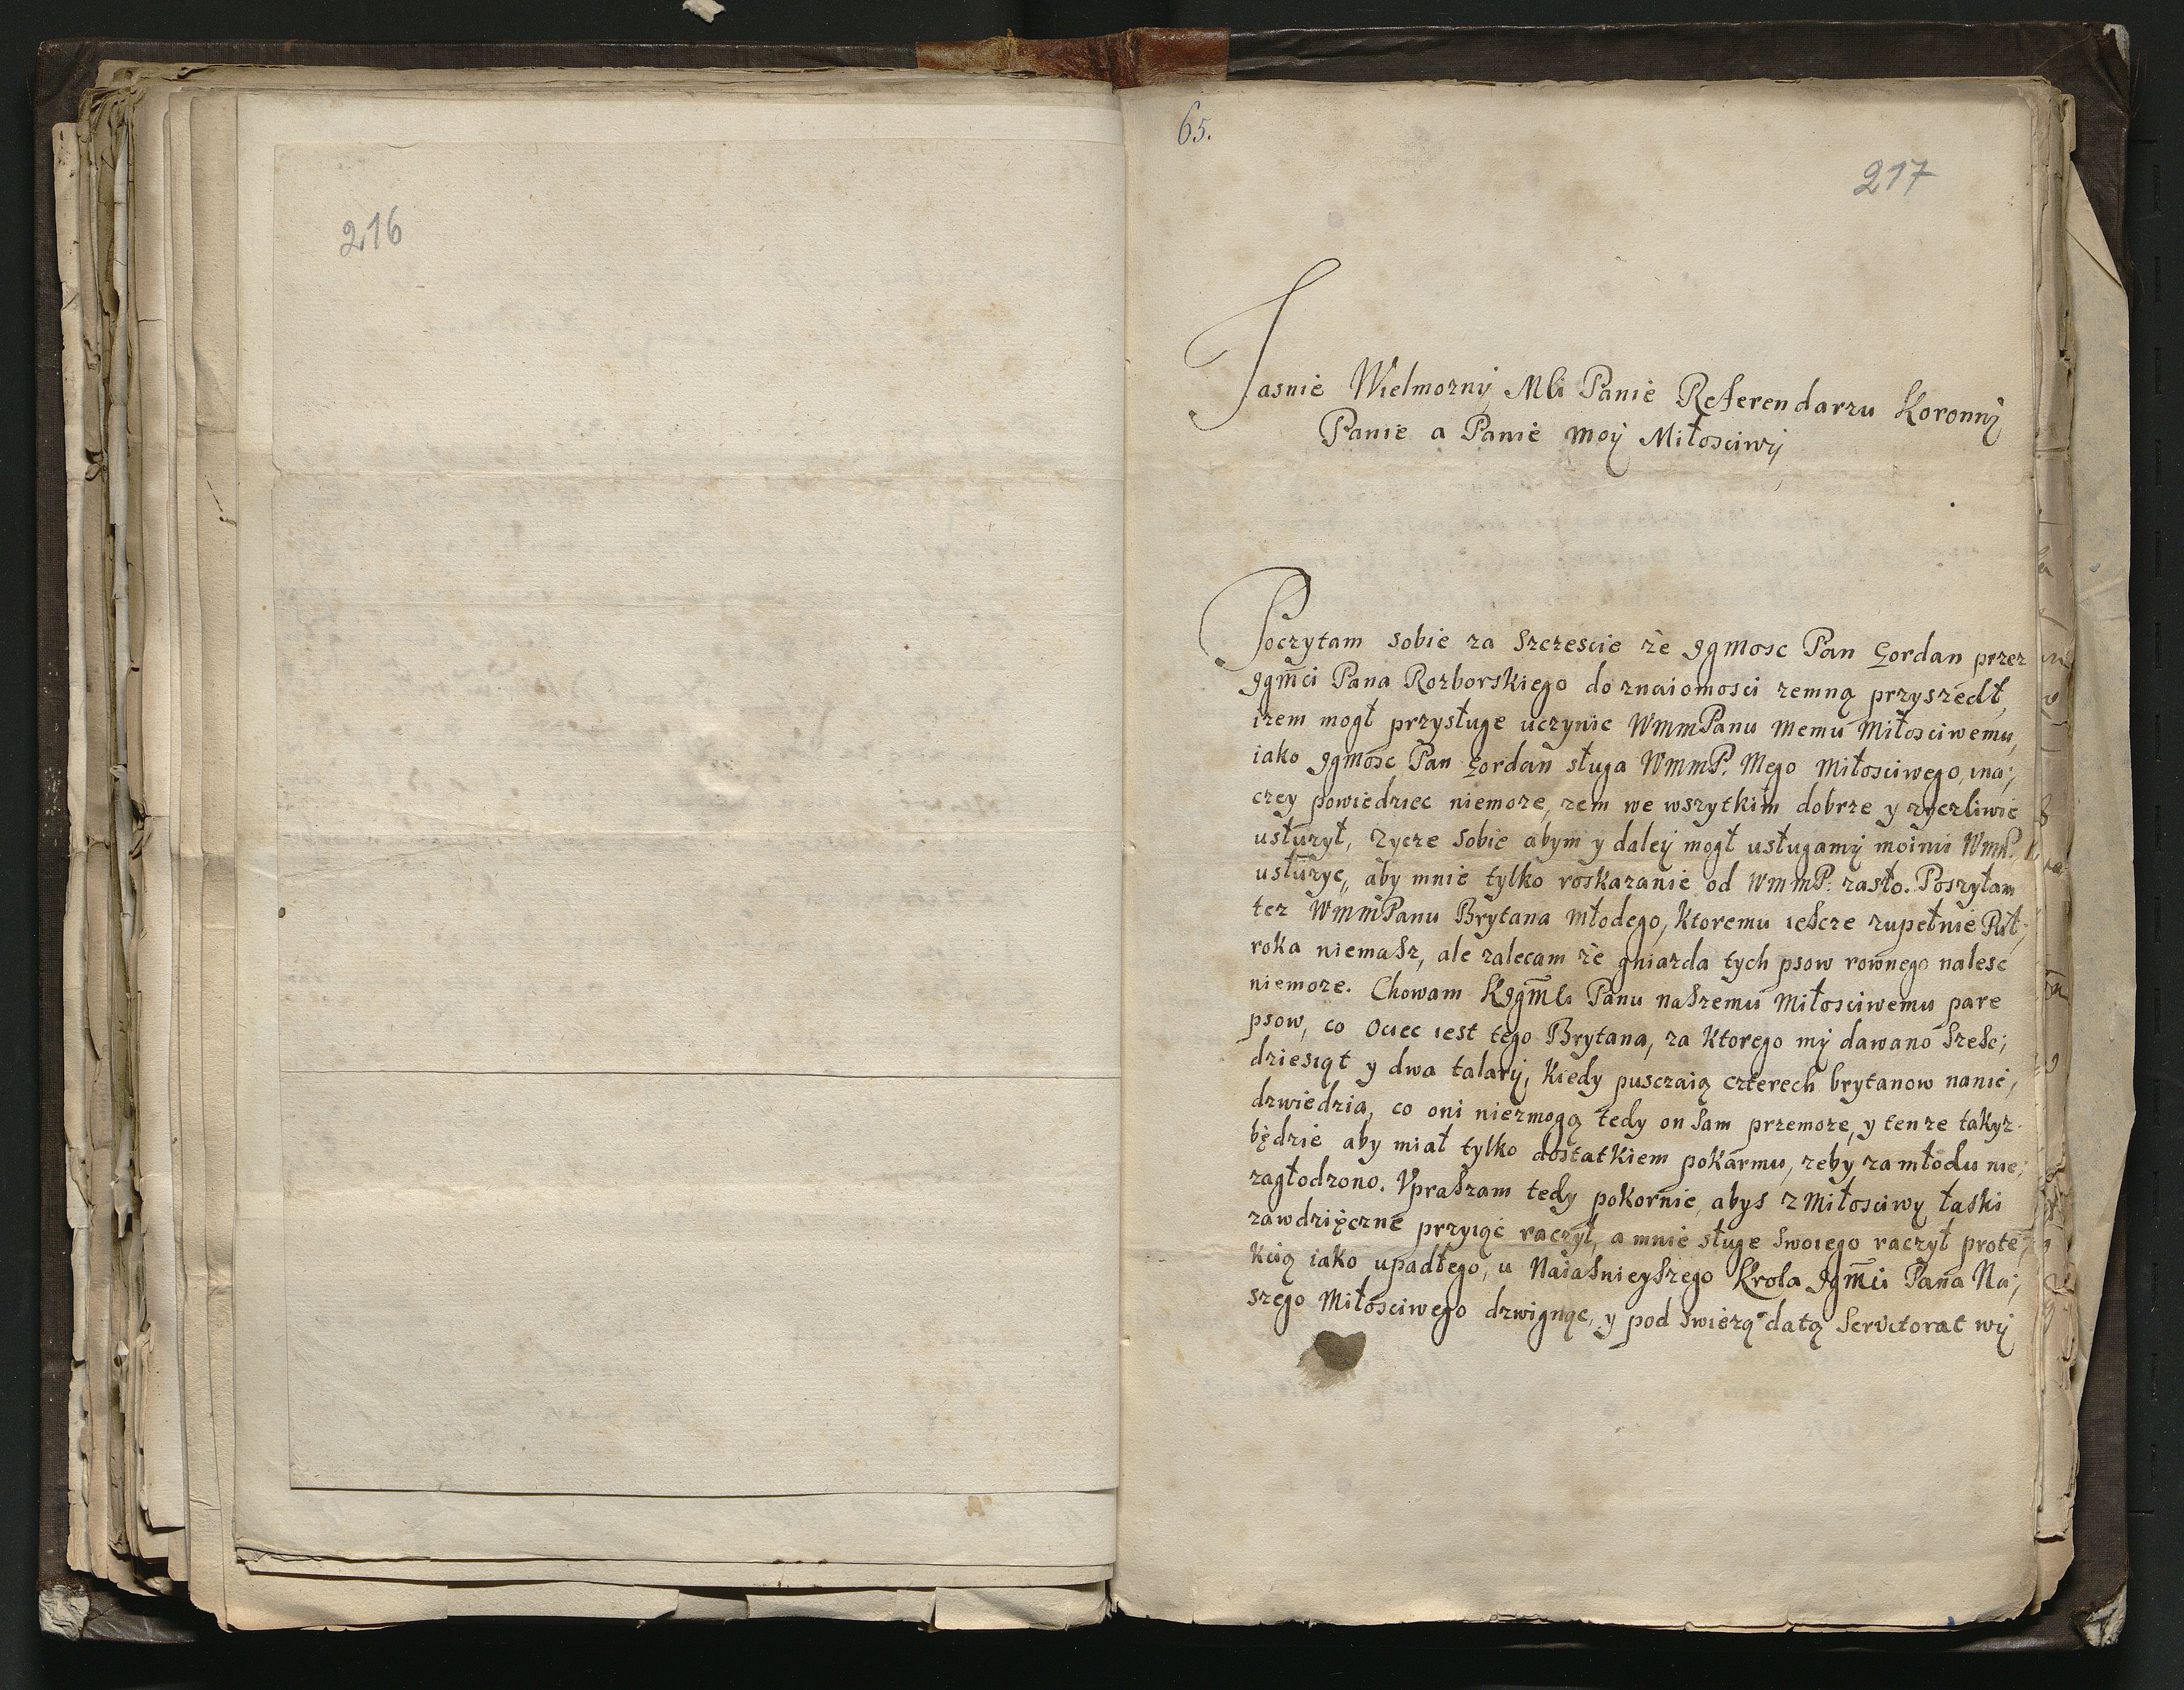 216
65.
217
Jasnie Wielmozny Mli Panie Referendarzu Koronny
Panie a Panie moy Miłosciwy
Poczytam sobie za Szczescie ze JgMosc Pan Gordan przez
Jgmci Pana Rozborskiego do znaiomosci zemną przyszedł,
izem mogł przysługe uczynic WmmPanu Memu Miłosciwemu,
iako JgMosc Pan Gordan sługa WmmP. Mego Miłosciwego, ina;
czey powiedziec niemoze, zem we wszytkim dobrze y zyczliwie
usłuzył, zycze sobie abym y daley mogł usługamy moimi WmP.
usłuzyc, aby mnie tylko roskazanie od WmmP. zasło. Poszyłam
tez WmmPanu Brytana młodego, Ktoremu iescze zupełnie Puł;
roka niemasz, ale zalecam ze gniazda tych psow rownego nalesc
niemoze. Chowam KJgMli Panu naszemu Miłosciwemu pare
psow, co Ociec iest tego Brytana, za Ktorego my dawano Szesc;
dziesiąt y dwa talary, Kiedy pusczaią czterech brytanow nanie;
dzwiedzia, co oni niezmogą tedy on sam przemoze, y tenze takyz
będzie aby miał tylko dostatkiem pokarmu, zeby zamłodu nie;
zagłodzono. Upraszam tedy pokornie, abys z Miłosciwy łaski
zawdzięczne przyiąć raczył, a mnie sługe swoiego raczył prote;
kcią iako upadłego, u Naiasnieyszego Krola Jgmci Pana Na;
szego Miłosciwego dzwignąc, y pod swiezą datą Servitorat wy